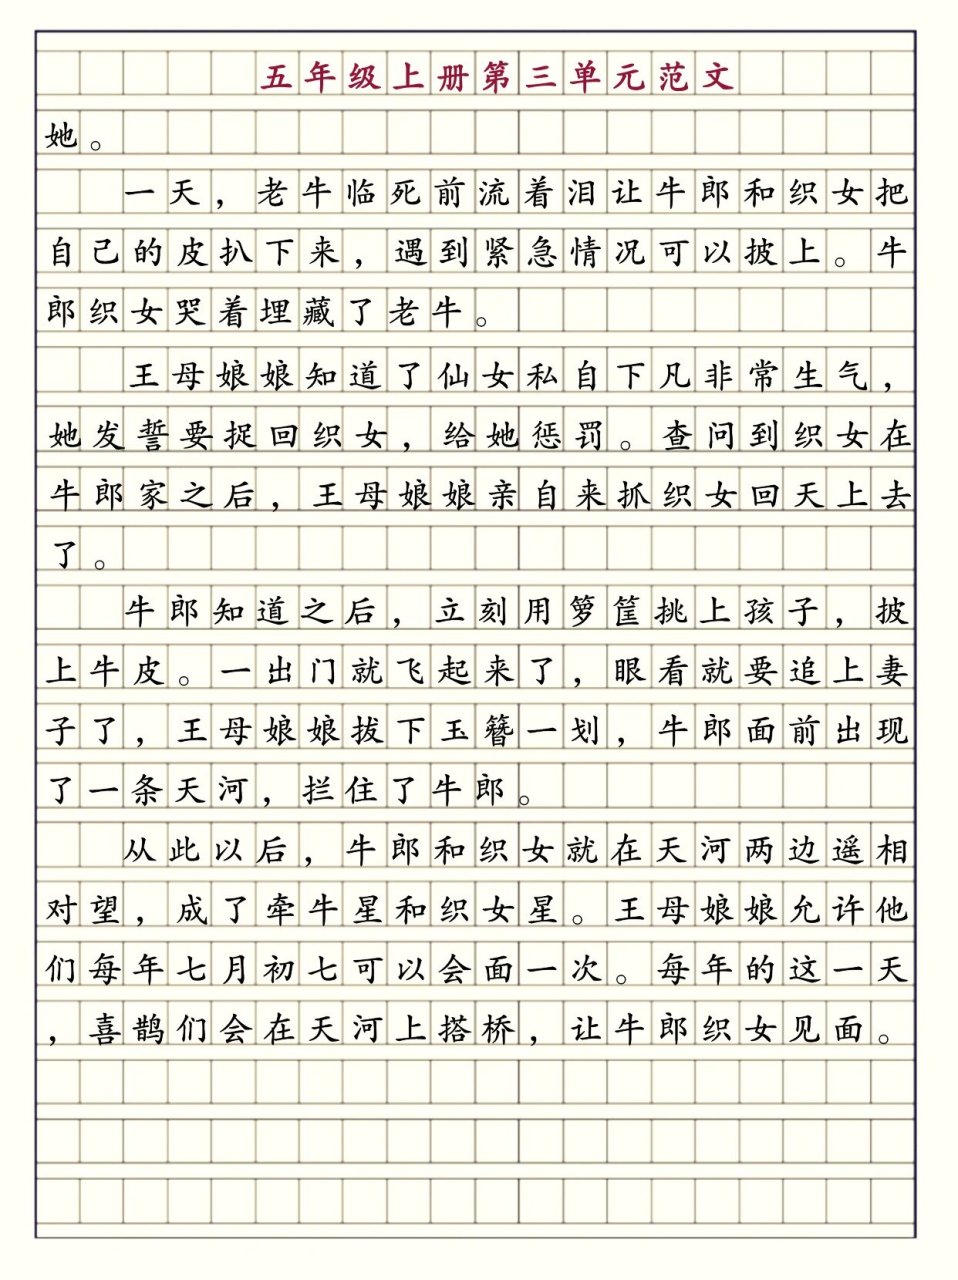 五年级上册第三单元范文
她。
一天，老牛临死前流着泪让牛郎和织女把
自己的皮扒下来，遇到紧急情况可以披上。牛
郎织女哭着埋藏了老牛。
王母娘娘知道了仙女私自下凡非常生气，
她发誓要捉回织女，给她惩罚。查问到织女在
牛郎家之后，王母娘娘亲自来抓织女回天上去
了。
牛郎知道之后，立刻用箩筐挑上孩子，披
上牛皮。一出门就飞起来了，眼看就要追上妻
子了，王母娘娘拔下玉簪一划，牛郎面前出现
了一条天河，拦住了牛郎。
从此以后，牛郎和织女就在天河两边遥相
对望，成了牵牛星和织女星。王母娘娘允许他
们每年七月初七可以会面一次。每年的这一天
，喜鹊们会在天河上搭桥，让牛郎织女见面。